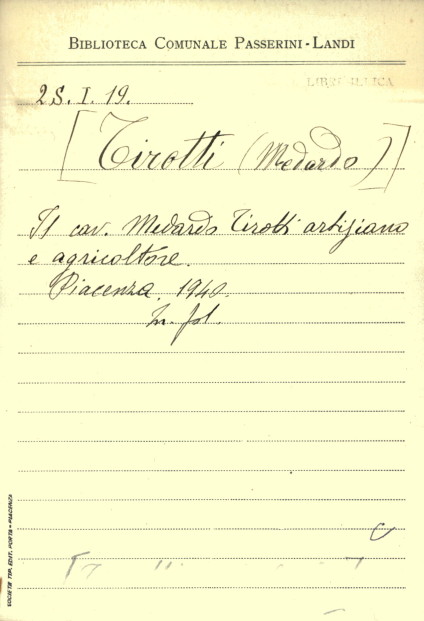 BIBLIOTECA COMUNALE PASSERINI-LANDI
2S. I. 19.
[Tirotti (Medardo)]
Il cav. Medardo Tirotti artigiano
e agricoltore.
Piacenza, 1940.
In fol.
SOCIETÀ TIP. EDIT. PORTA - PIACENZA